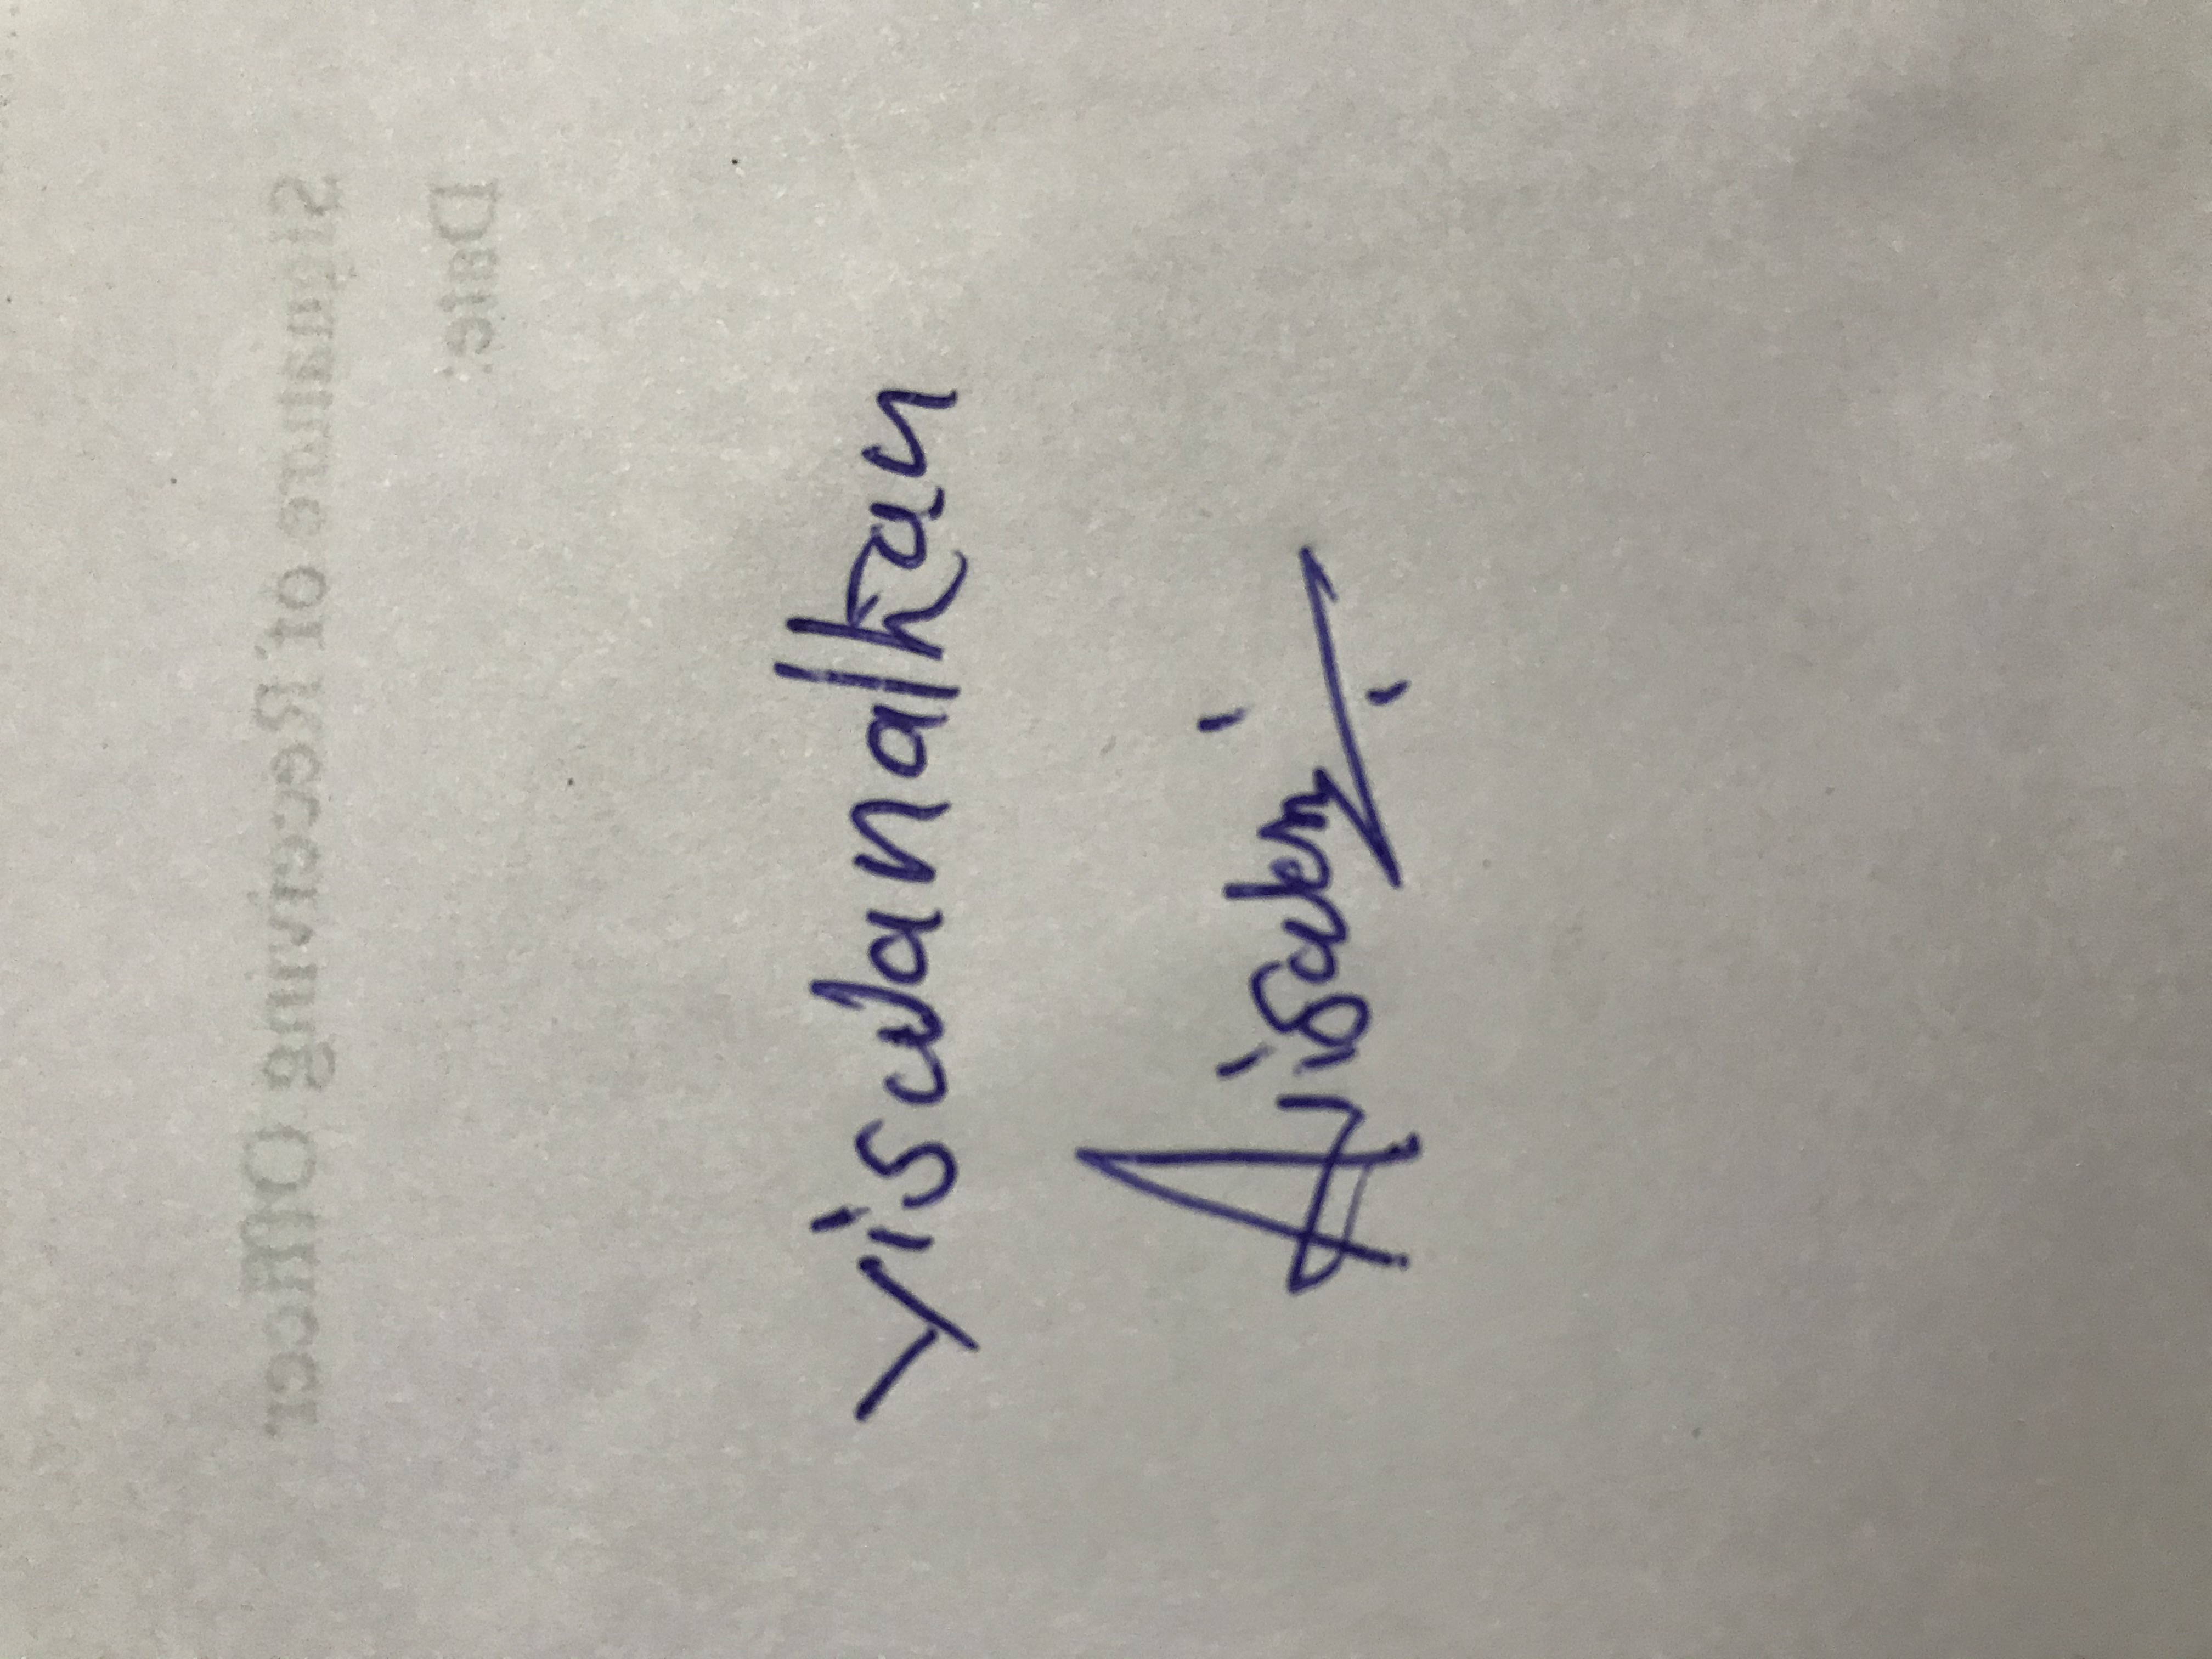 Signature of Receiving Officer
Date:
viswanathan